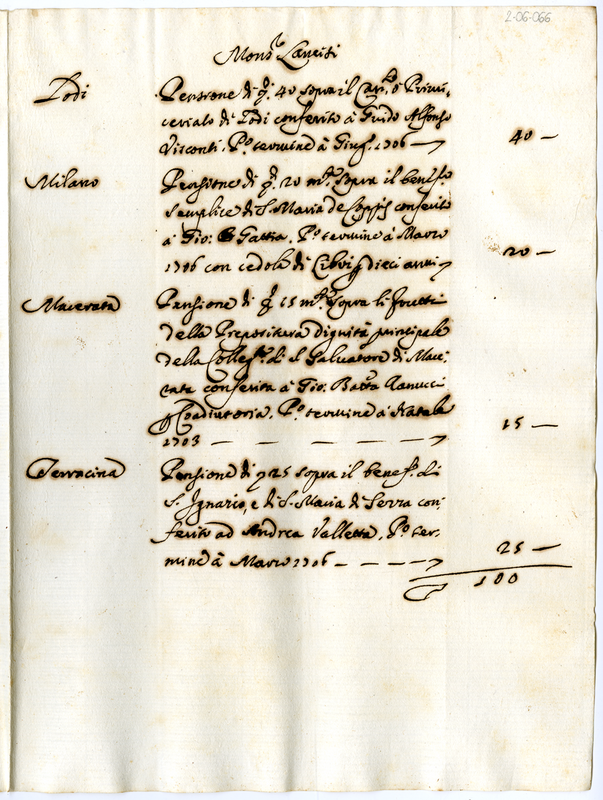 2-06-066
Mons.r Lancisi
Todi Pensione di ꝗ. 40 sopra il Can.to ò Primi-
ceriato di Todi conferito à Guido Alfonso
Visconti. P.o termine à Giug. 1706 40 —
Milano Pensione di ꝗ. 20 m.ta sopra il benef.o
semplice di S. Maria de conferito
à Gio: Gattia. P.o termine à Marzo
1706 con cedola di Cibvij p dieci anni 20 —
Macerata Pensione di ꝗ 15 m.ta sopra li frutti
della Prepositura dignità principale
della Colleg.ta di S. Salvatore di Mace-
rata conferita à Gio: Batta Vanucci
p Coadiutoria. P.o termine à Natale
1703 — — — — 15 —
Terracina Pensione di ꝗ 25 sopra il benef. di
S. Ignazio, e di S. Maria di Serra con-
ferito ad Andrea Valletta. P.o ter-
mine à Marzo 1706 — — — 25 —
100